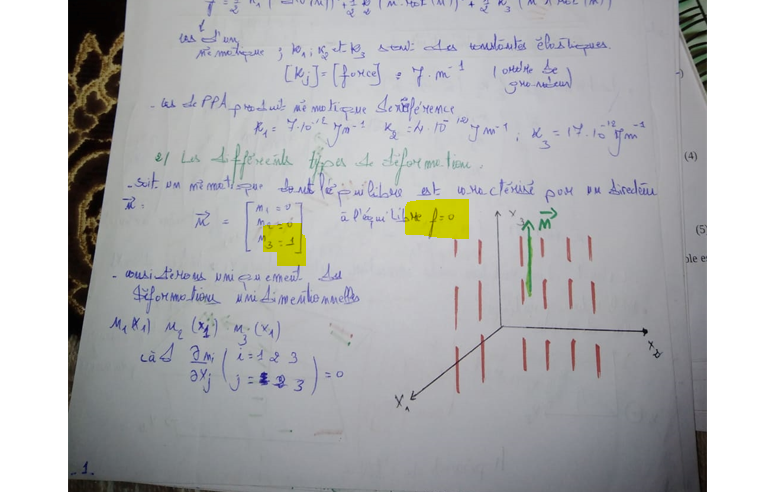 cas d'un
nématique, K₁, K₂ et K₃ sont des constantes élastiques.
[Kj] = [force] = J.m⁻¹ (ordre de grandeur)
- cas de PPA produit nématique de référence
K₁ = 7.10⁻¹² J m⁻¹ K₂ = 4.10⁻¹² J m⁻¹ ; K₃ = 17.10⁻¹² J m⁻¹
2/ Les différents types de déformation.
- soit un nématique dont l'équilibre est caractérisé par un directeur
n⃗ =
n⃗ = [ n₁ = 0
n₂ = 0
n₃ = 1 ]
à l'équilibre f = 0
- considérons uniquement des
déformations unidimentionnelles
n₁(x₁) n₂(x₁) n₃(x₁)
càd ∂ni/∂xj ( i = 1 2 3
j = 2 3 ) = 0
x₃
n⃗
x₂
x₁
- 1 -
(4)
(5